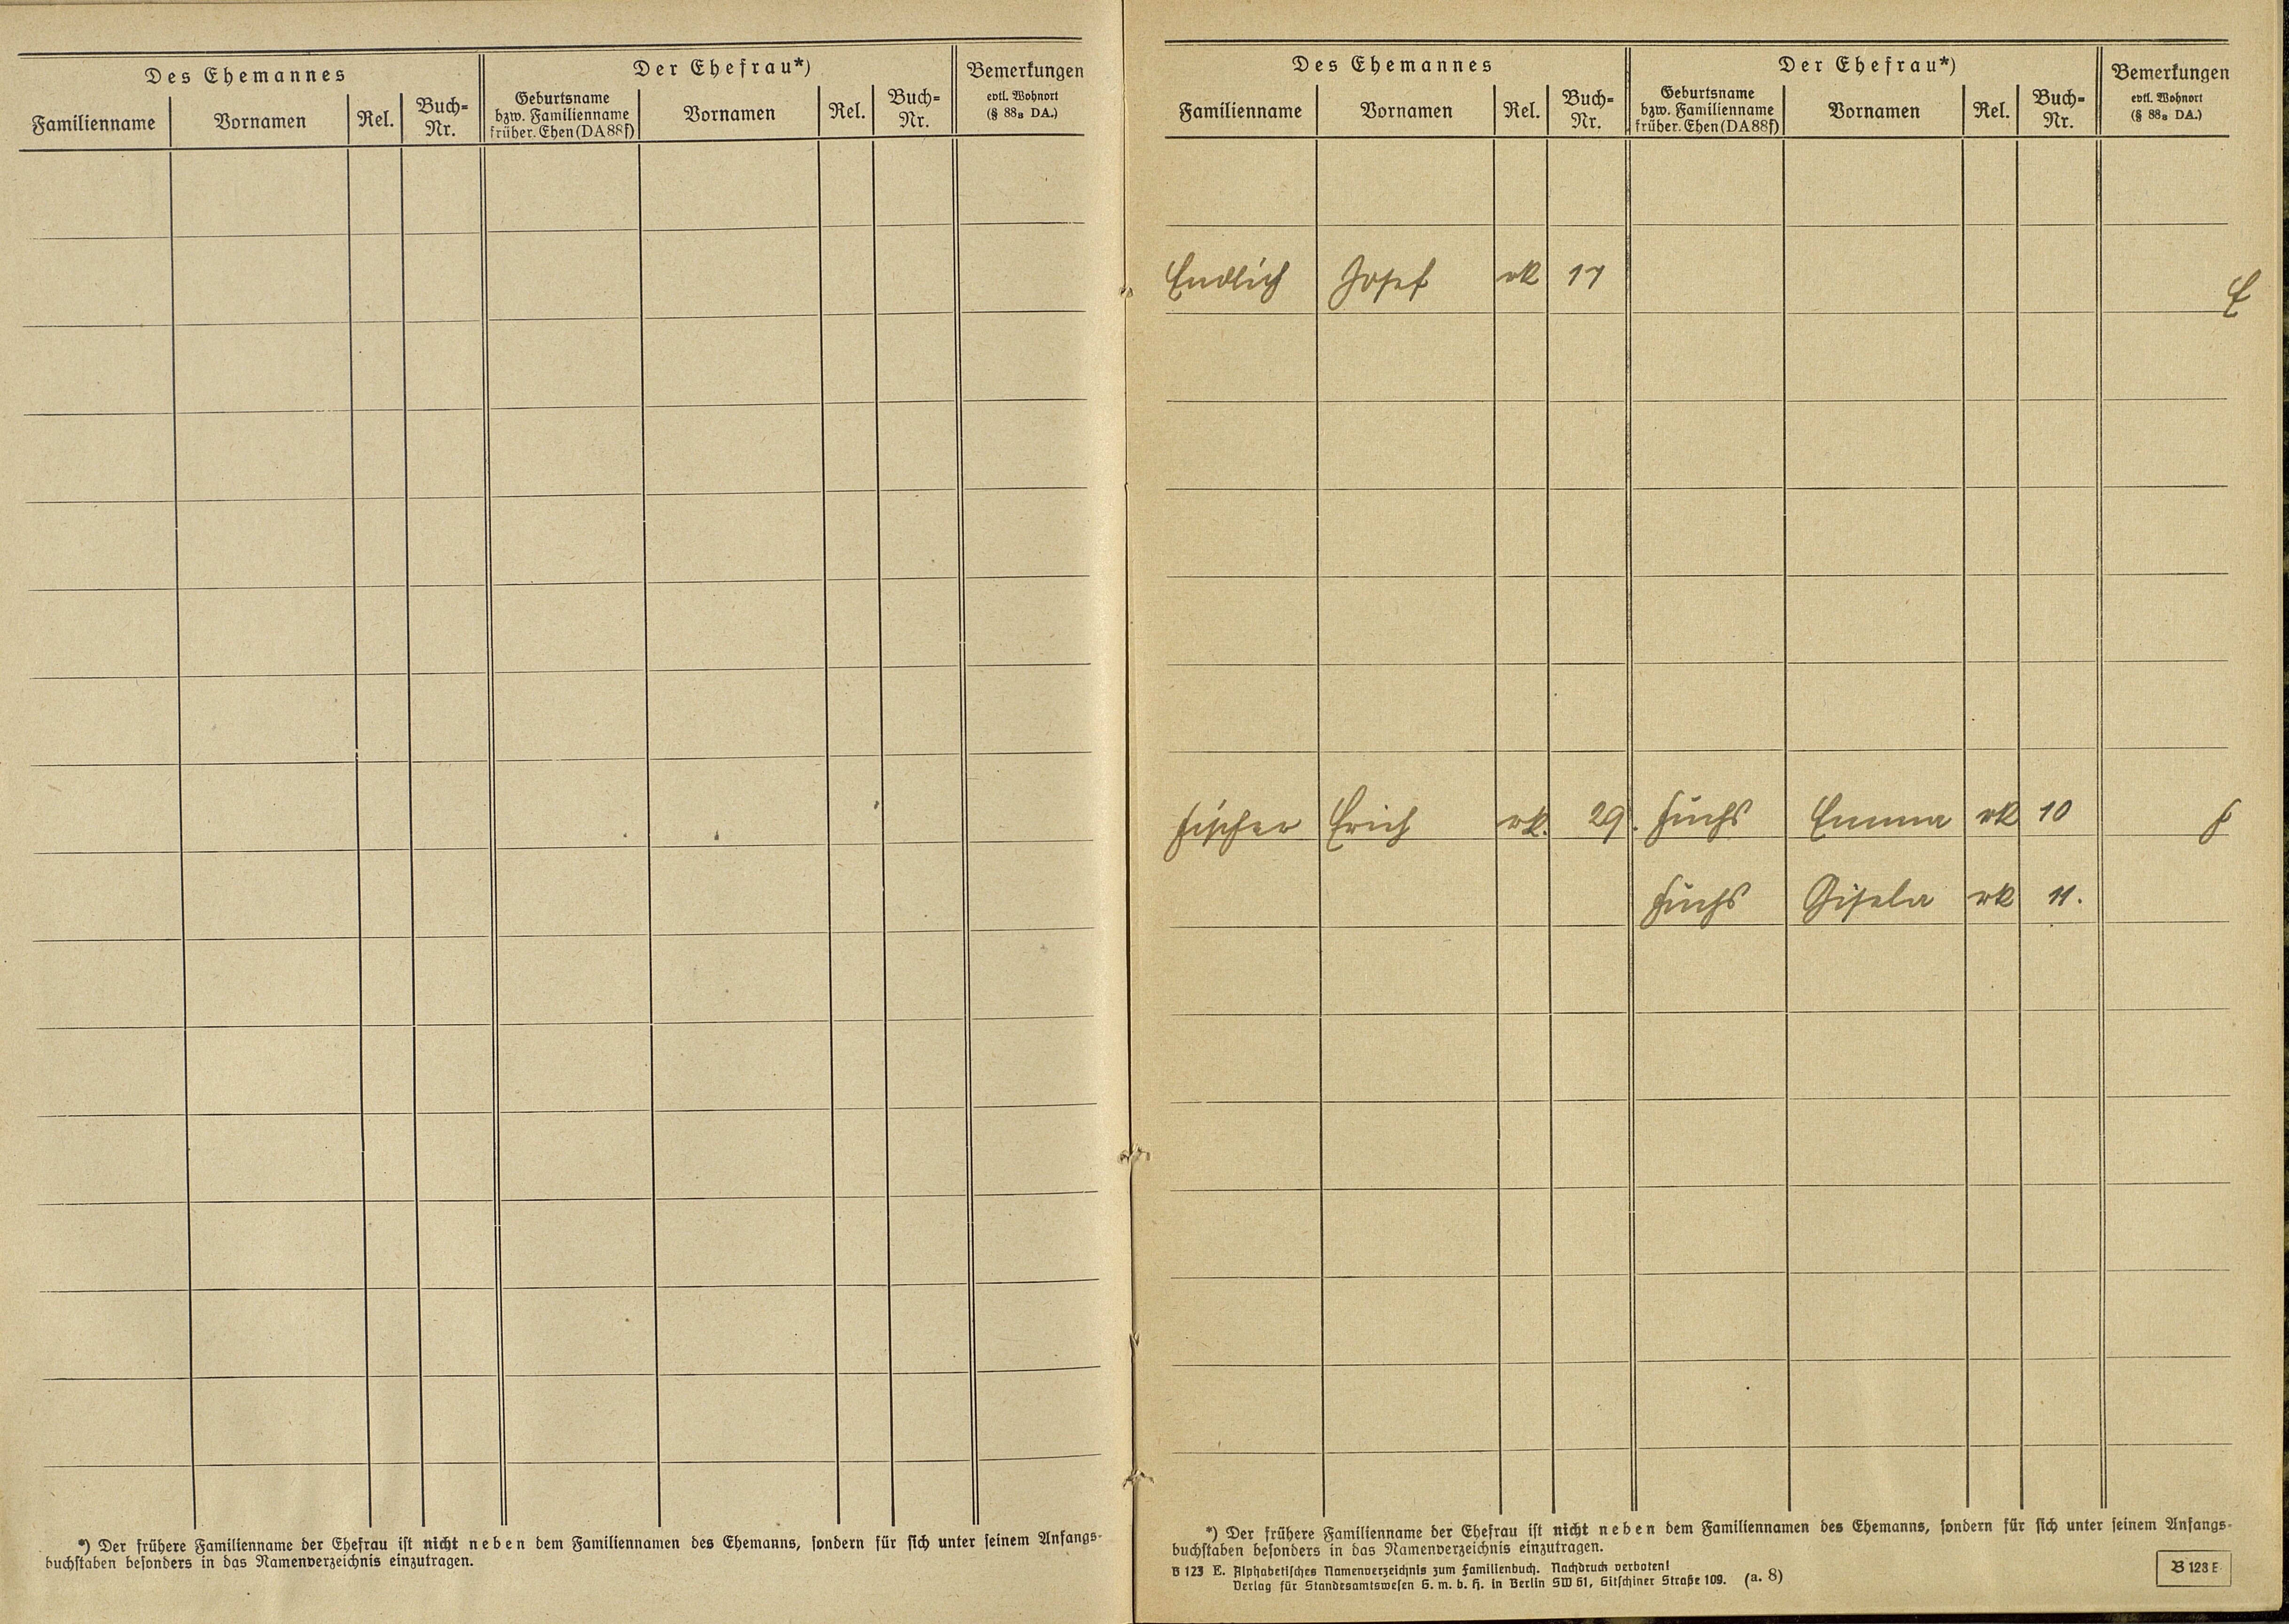 Des Ehemannes
Der Ehefrau*)
Bemerkungen
evtl. Wohnort
(§ 88a DA.)
Familienname
Vornamen
Rel.
Buch=
Nr.
Geburtsname
bzw. Familienname
früher. Ehen (DA 88f)
Vornamen
Rel.
Buch=
Nr.
*) Der frühere Familienname der Ehefrau ist nicht neben dem Familiennamen des Ehemanns, sondern für sich unter seinem Anfangs-
buchstaben besonders in das Namenverzeichnis einzutragen.
Des Ehemannes
Der Ehefrau*)
Bemerkungen
evtl. Wohnort
(§ 88a DA.)
Familienname
Vornamen
Rel.
Buch=
Nr.
Geburtsname
bzw. Familienname
früher. Ehen (DA 88f)
Vornamen
Rel.
Buch=
Nr.
Endlich Josef rk 17
E
Fischer Erich rk. 29. Fuchs Emma rk 10
F
Fuchs Gisela rk 11.
*) Der frühere Familienname der Ehefrau ist nicht neben dem Familiennamen des Ehemanns, sondern für sich unter seinem Anfangs-
buchstaben besonders in das Namenverzeichnis einzutragen.
B 123 E. Alphabetisches Namenverzeichnis zum Familienbuch. Nachdruck verboten!
Verlag für Standesamtswesen G. m. b. H. in Berlin SW 61, Gitschiner Straße 109. (a. 8)
B 123 E